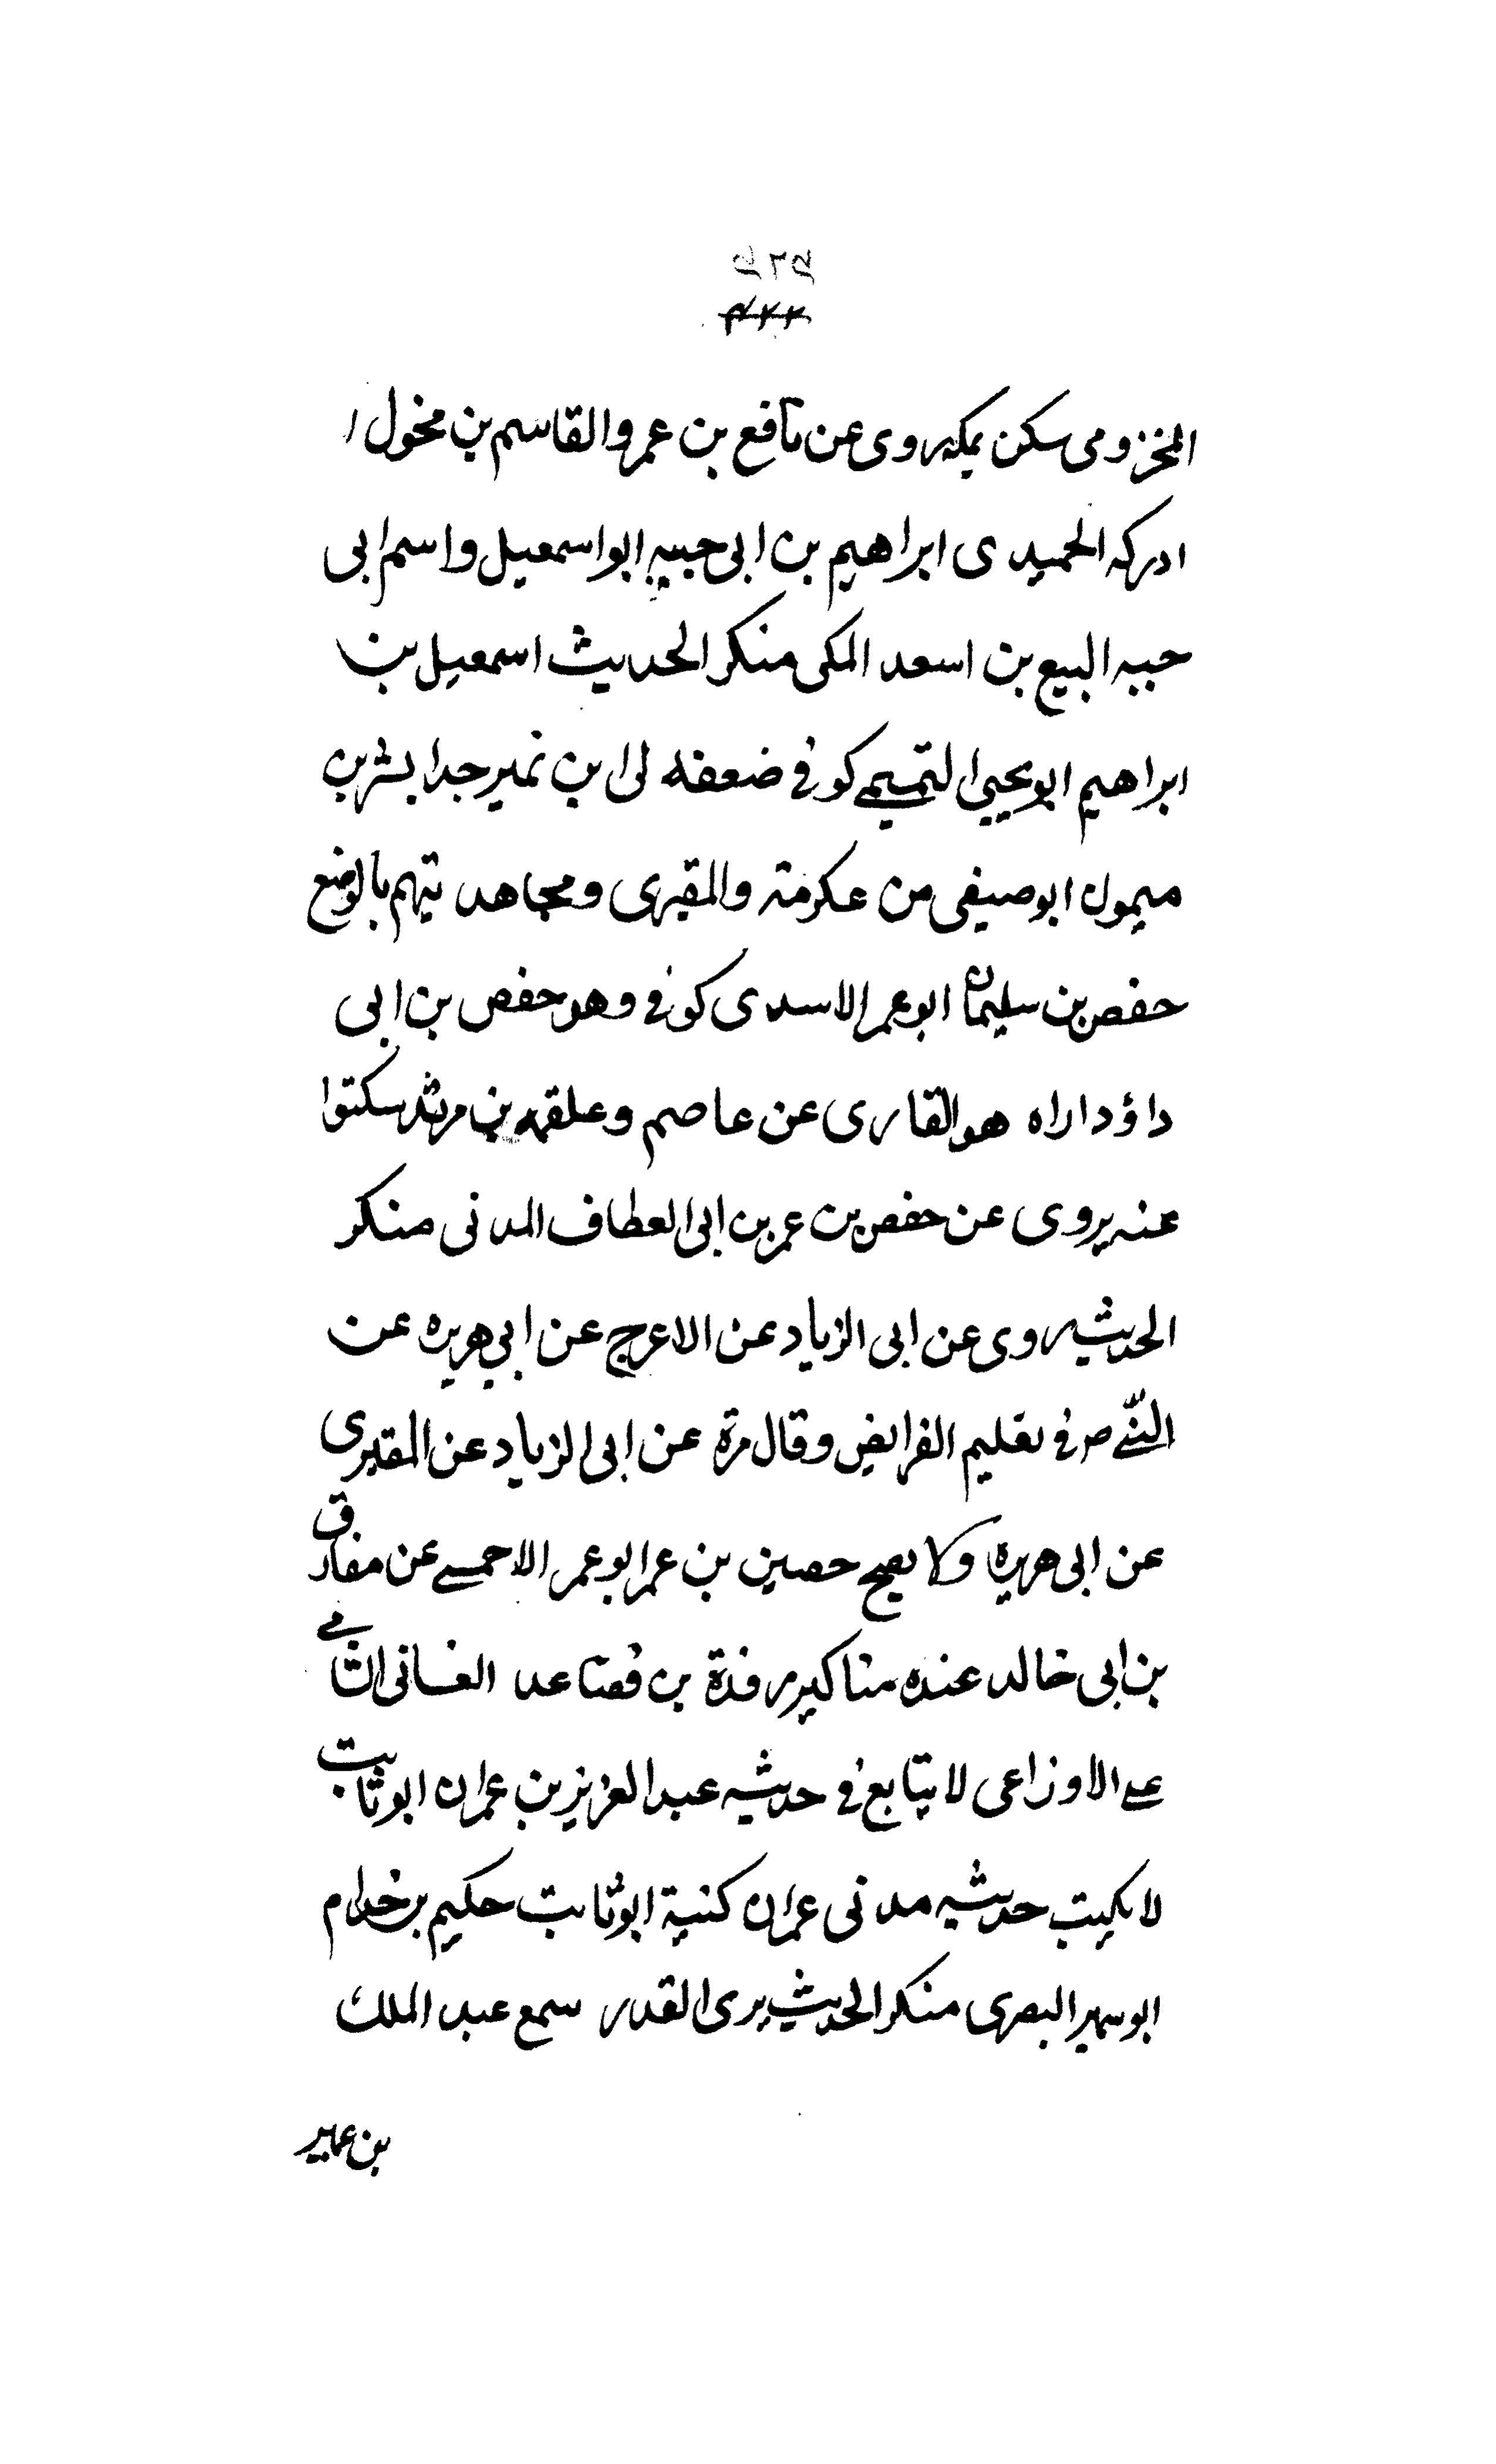 المخزومى سكن بمكه روى عن نافع بن عمر والقاسم بن مخول ا
ادركه الحميدى ابراهيم بن ابى حبيبه ابو اسمعيل واسم ابى
حبيه البيع بن اسعد المكى منكر الحديث اسمعيل بن
ابراهيم ابو يحيى التميمى كوفى ضعفه لى ابن نمير جدا بشر بن
ميمون ابو صيفى من عكرمة والمقبرى ومجاهد يتهم بالوضع
حفص بن سليمان ابو عمر الاسدى كوفى وهو حفص بن ابى
داؤد اراه هو القارى عن عاصم وعلقمه بن مرثد سكتوا
عنه يروى عن حفص بن عمر بن ابى العطاف المدنى منكر
الحديث روى عن ابى الزياد عن الاعرج عن ابى هريره عن
النبى ص فى تعليم الفرايض وقال مرة عن ابى الزياد عن المقبرى
عن ابى هريرة ولا يصح حصين بن عمر ابو عمر الاحمسى عن مفارق
بن ابى خالد عنده مناكير رفدة بن قضاعد الغسانى الشامى
عن الاوزاعى لا يتابع فى حديثه عبد العزيز بن عمران ابو ثابت
لا يكتب حديثه مدنى عمران كنية ابو ثابت حكيم بن خدام
ابو سمير البصرى منكر الحديث يرى القدر سمع عبد الملك
بن عمير